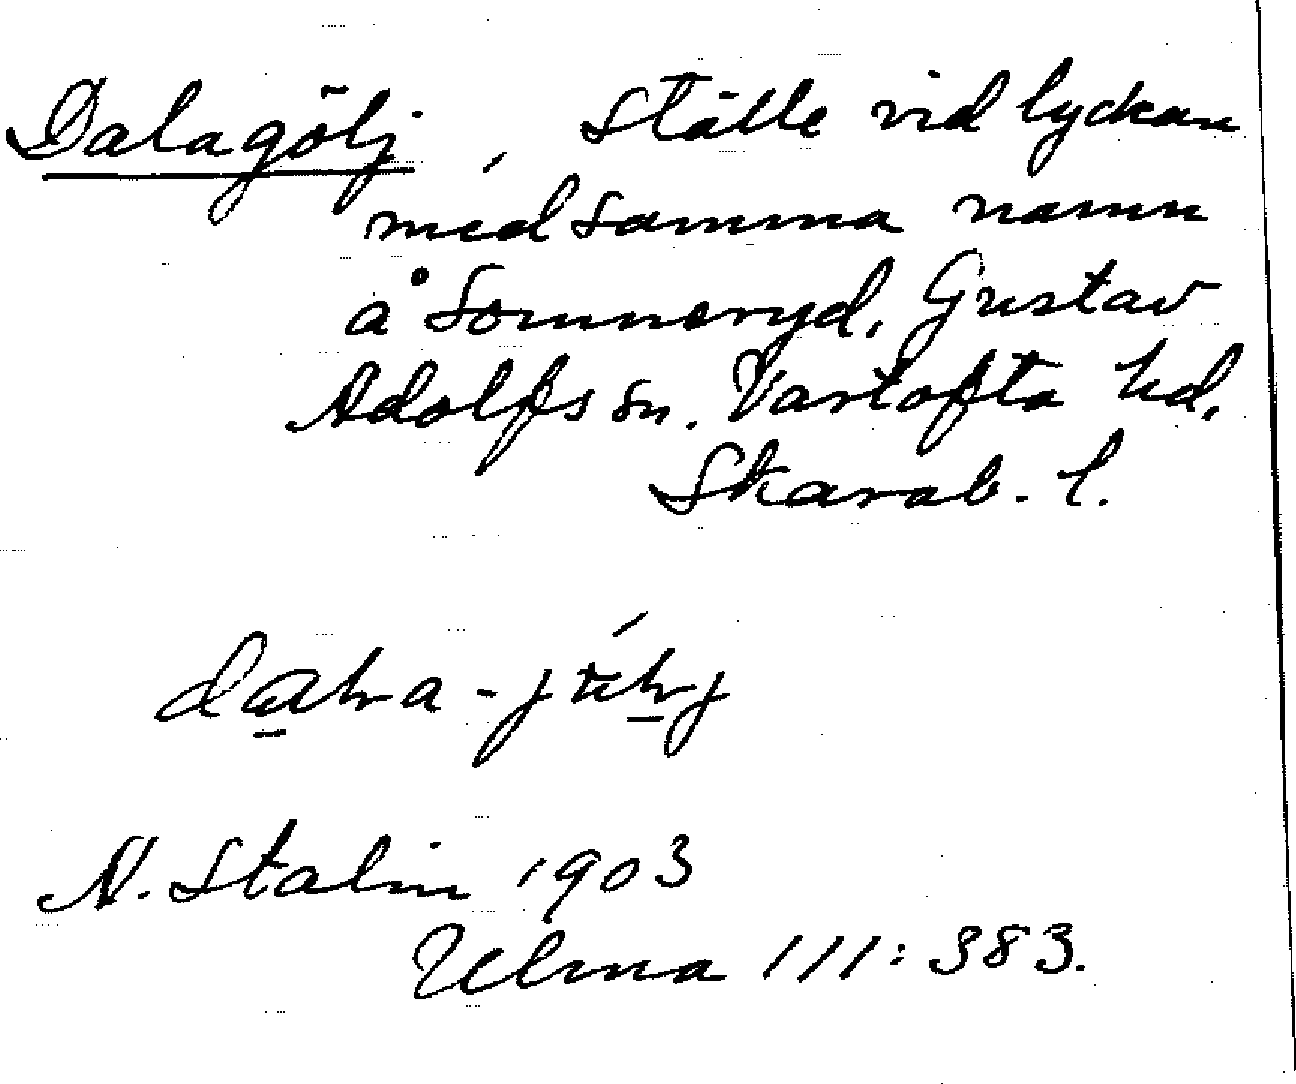 Dalagölj, Ställe vid lyckan
med samma namn
å Sommeryd, Gustav
Adolfs sn. Vartofta hd,
Skarab. l.
N. Stalin 1903
Ulma 111:383.